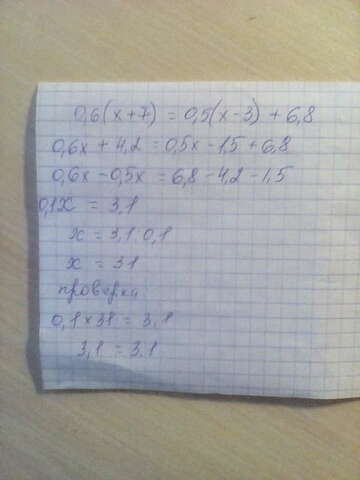 0,6(x+7) = 0,5(x-3) + 6,8
0,6x + 4,2 = 0,5x - 1,5 + 6,8
0,6x - 0,5x = 6,8 - 4,2 - 1,5
0,1x = 3,1
x = 3,1:0,1
x = 31
проверка
0,1 × 31 = 3,1
3,1 = 3,1